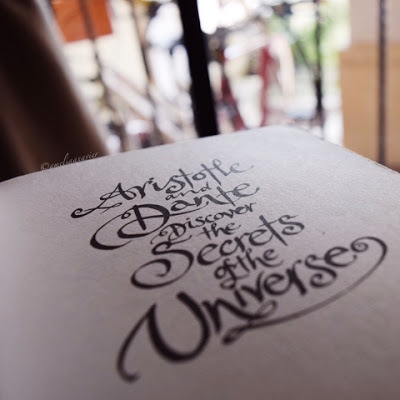 Aristotle
and
Dante
Discover
the
Secrets
of the
Universe